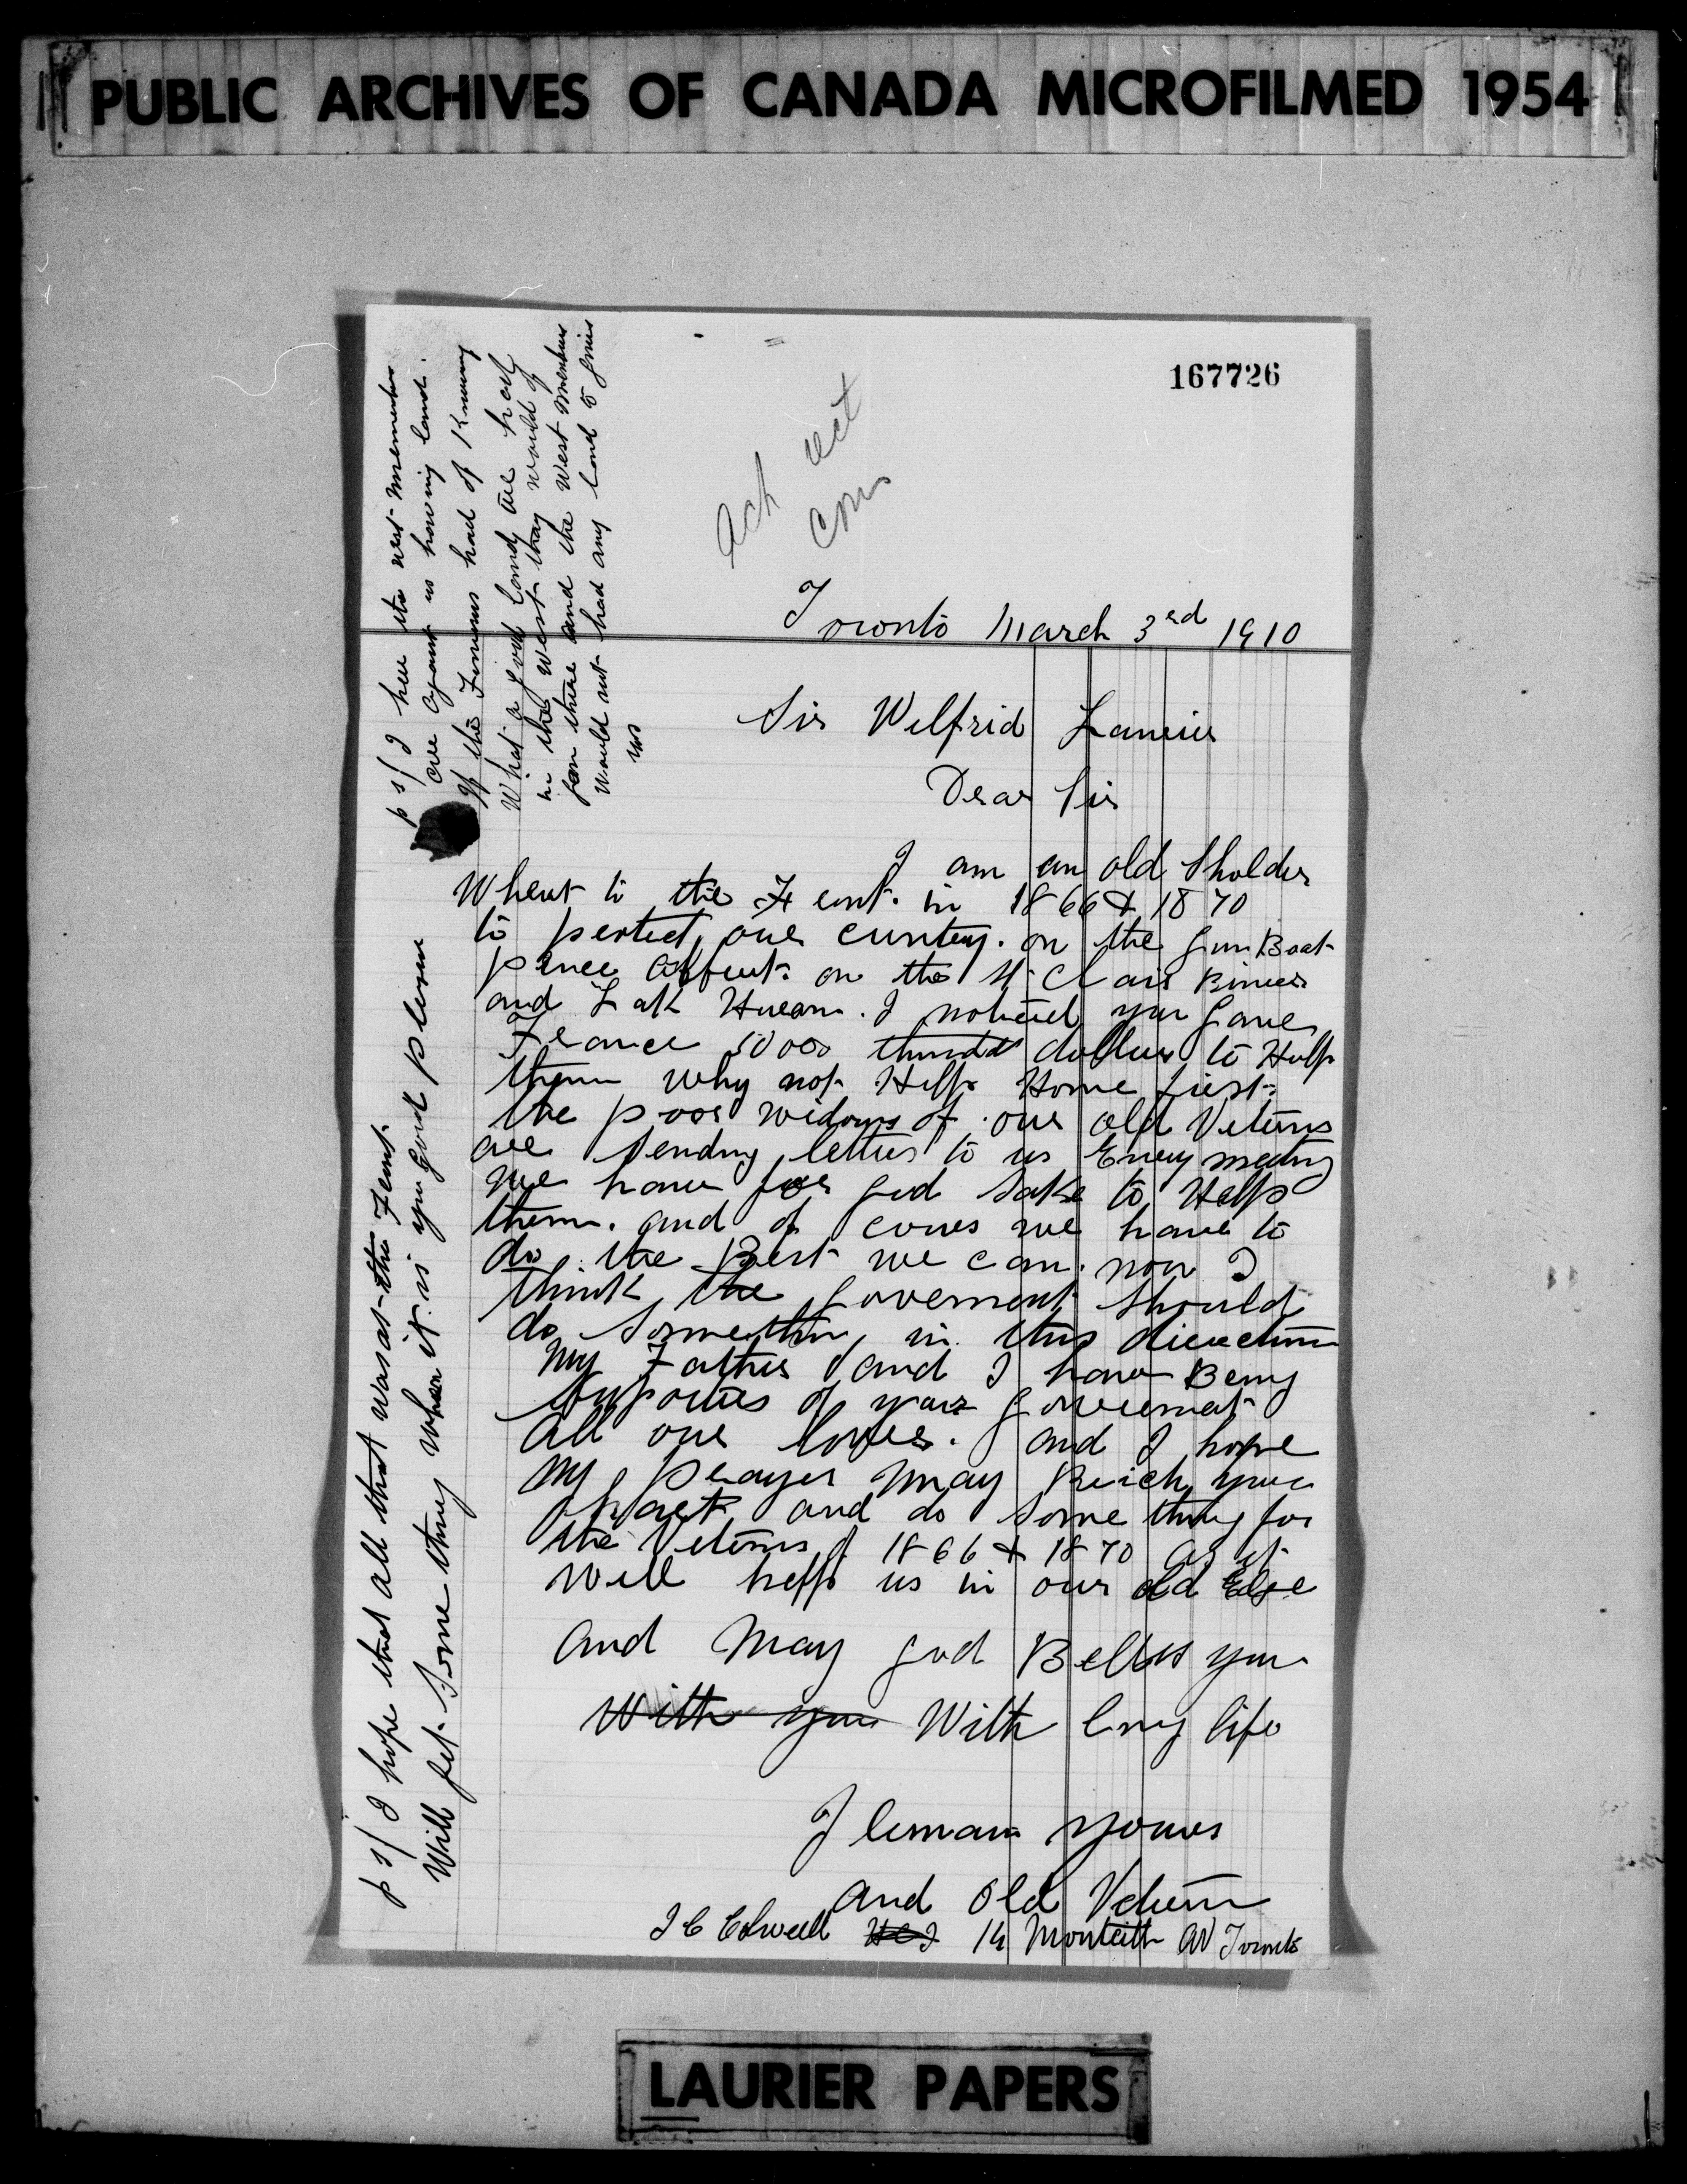 PUBLIC ARCHIVES OF CANADA MICROFILMED 1954
167726
Ack
Toronto March 3rd 1910
Sir Wilfrid Laurier
Dear Sir
I am an old Sholder
Whent to the Frount. in 1866 & 1870
to pertect our cuntery. on the Gun Boat
Prince Alfreut. on the St Clair River
and Lak Huron. I noticed you Gave
France 50000 dollers to Help
them why not Help Home first.
the poor widows of our old Veterns
are sending letters to us Every meeting
we have for god sake to Help
them. and of cours we have to
do the Best we can. now I
think the goverment should
do somethin, in this direction
My Father and I have Being
supporters of your goverment
all our lives. and I hope
my prayer may Reich your
heart and do some thing for
the Veterns of 1866 & 1870 as it
will help us in our old Eage
and May god Bellss you
With you With long life
I leman yours
and Old Vetern
J C Colwell 14 Monteith AV Toronto
p s/ I hope that all that was at the Frunt
Will get some thing when it is you good pleasue
p s/ I hear the west members
are against us having land.
If the Finnens had of Knowing
What a good land are
in the West they would of
gon there and the West Members
Would not had any land to give
us
LAURIER PAPERS